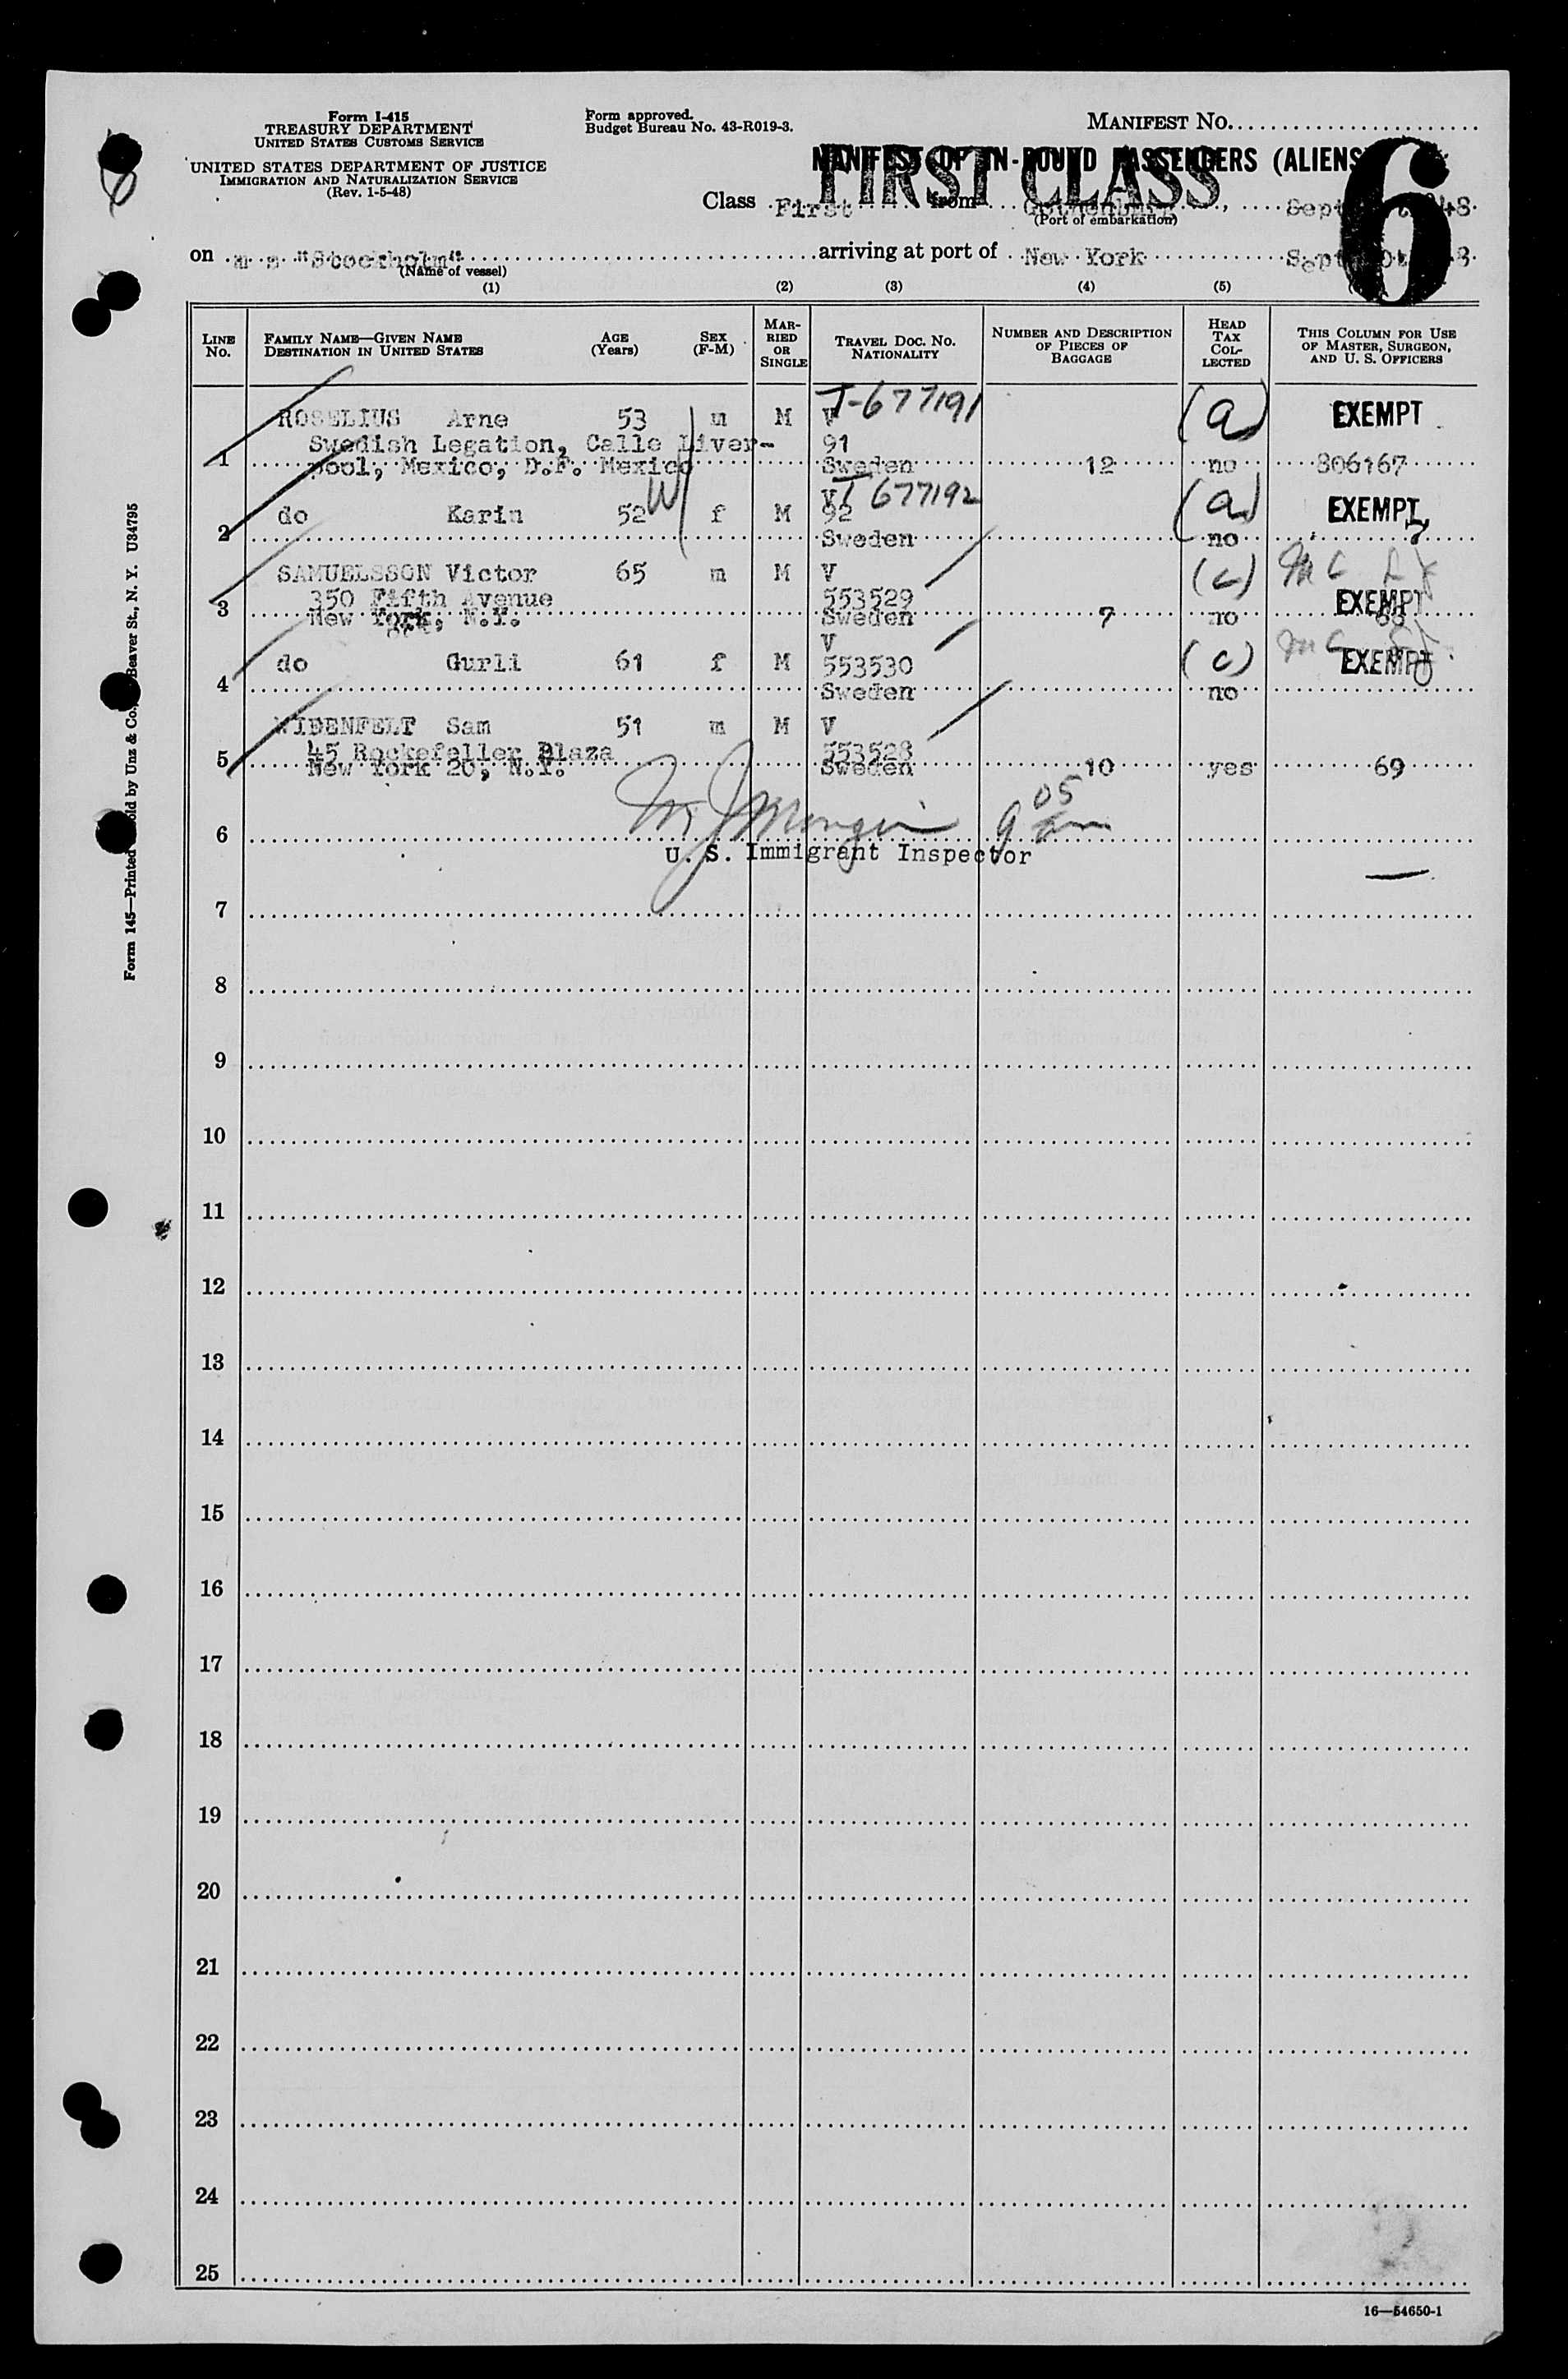 Form I-415
TREASURY DEPARTMENT
UNITED STATES CUSTOMS SERVICE
UNITED STATES DEPARTMENT OF JUSTICE
IMMIGRATION AND NATURALIZATION SERVICE
(Rev. 1-5-48)
Form approved.
Budget Bureau No. 43-R019-3.
MANIFEST NO.
MANIFEST OF IN-BOUND PASSENGERS (ALIENS)
FIRST CLASS
6
Class First from Gothenburg, Sept
(Port of embarkation)
on m s "Stockholm" arriving at port of New York
(Name of vessel)
(1) (2) (3) (4) (5)
LINE NO.
FAMILY NAME—GIVEN NAME
DESTINATION IN UNITED STATES
AGE (Years)
SEX (F-M)
MARRIED OR SINGLE
TRAVEL DOC. NO.
NATIONALITY
NUMBER AND DESCRIPTION OF PIECES OF BAGGAGE
HEAD TAX COLLECTED
THIS COLUMN FOR USE OF MASTER, SURGEON, AND U. S. OFFICERS
T-677191
ROSELIUS Arne 53 m M V (a) EXEMPT
Swedish Legation, Calle Liver- 91
1 pool, Mexico, D.F. Mexico Sweden 12 no 806167
W
V T 677192
do Karin 52 f M 92 (a) EXEMPT
2 Sweden no
SAMUELSSON Victor 65 m M V (c)
350 Fifth Avenue 553529 EXEMPT
3 New York, N.Y. Sweden 7 no 68
V
do Gurli 61 f M 553530 (c) EXEMPT
4 Sweden no
WIDENFELT Sam 51 m M V
45 Rockefeller Plaza 553528
5 New York 20, N.Y. Sweden 10 yes 69
6 9 05 am
U. S. Immigrant Inspector
7
8
9
10
11
12
13
14
15
16
17
18
19
20
21
22
23
24
25
16—54650-1